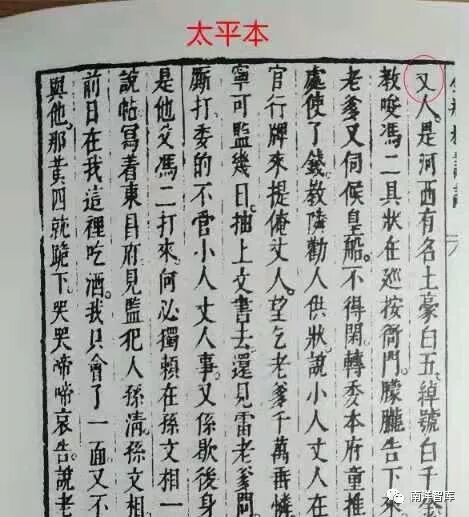 太平本
又人。是河西有各土豪白五。綽號白千金
教唆馮二具狀在廵按衙門。朦朧告下來
老爹又伺候皇船。不得閑。轉委本府童推
處使了錢。教隣勸人供狀。說小人丈人在
官行牌來提俺丈人。望乞老爹千萬垂憐
寧可監幾日。抽上文書去。還見雷老爹問
厮打。委的不管小人丈人事。又係歇後身
是他父馮二打來。何必獨賴在孫文相一
說帖寫着東目府見監犯人孫清孫文相
前日在我這裡吃酒。我只會了一面。又不
與他。那黃四就跪下。哭哭啼啼哀告。說老
南洋智库